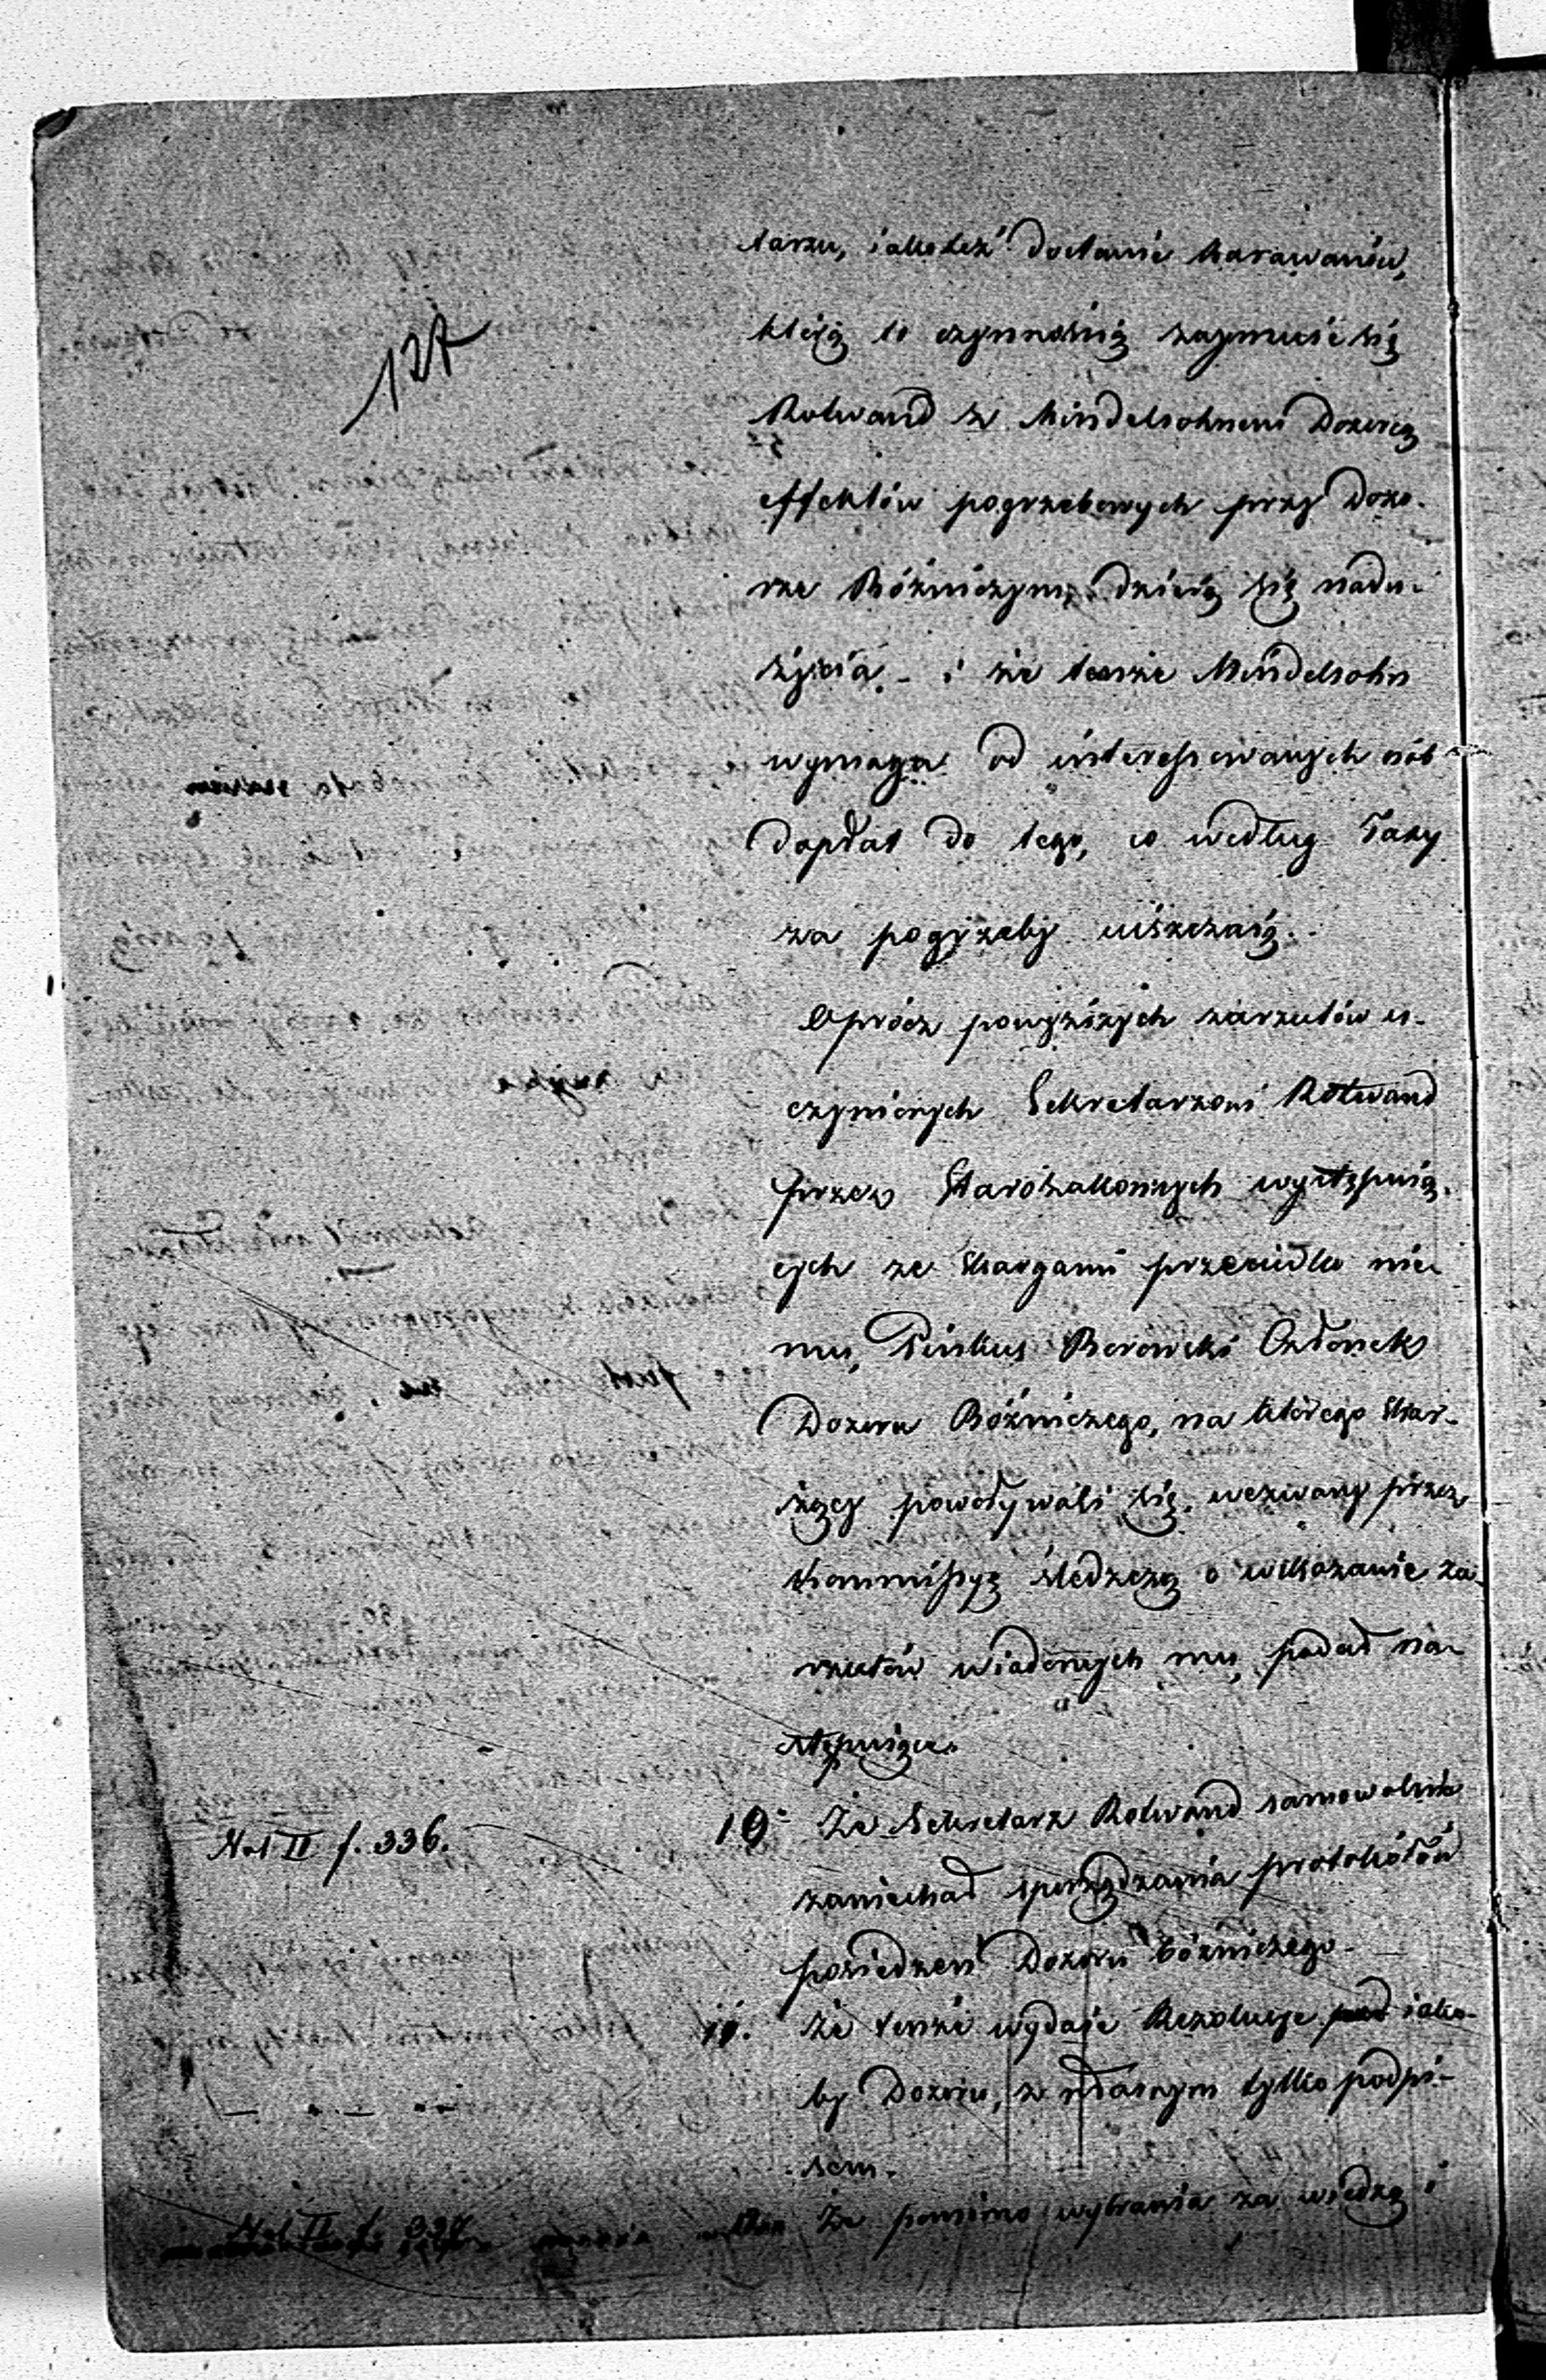 127
tarzu, iakoteż dostanie karawanów,
którą to czynnością zajmuie się
Rotwand z Mindelsohnem Dozorcą
effektów pogrzebowych przy Dozo-
rze Bóżniczym, dzieią się nadu-
życia - i że tenże Mindelsohn
wymaga od interessowanych osób
dopłat do tego, co według Taxy
za pogrzeby uiszczaią.
Oprócz powyższych zarzutów u-
czynionych Sekretarzowi Rotwand
przez Starozakonnych występuią-
cych ze skargami przeciwko nie-
mu, Pinkus Borowski Członek
Dozoru Bóżniczego, na którego skar-
żący powoływali się, wezwany przez
Kommissyę śledczą o wskazanie za-
rzutów wiadomych mu, podał na-
stępuiące.
Vol II f. 336. 10. Że Sekretarz Rotwand samowolnie
zaniechał sporządzania protokółów
posiedzeń Dozoru bóżniczego.
11. Że tenże wydaie Rezolucye iako-
by Dozoru, z własnym tylko podpi-
sem.
Vol II f. Że pomimo wybrania za wiedzą i